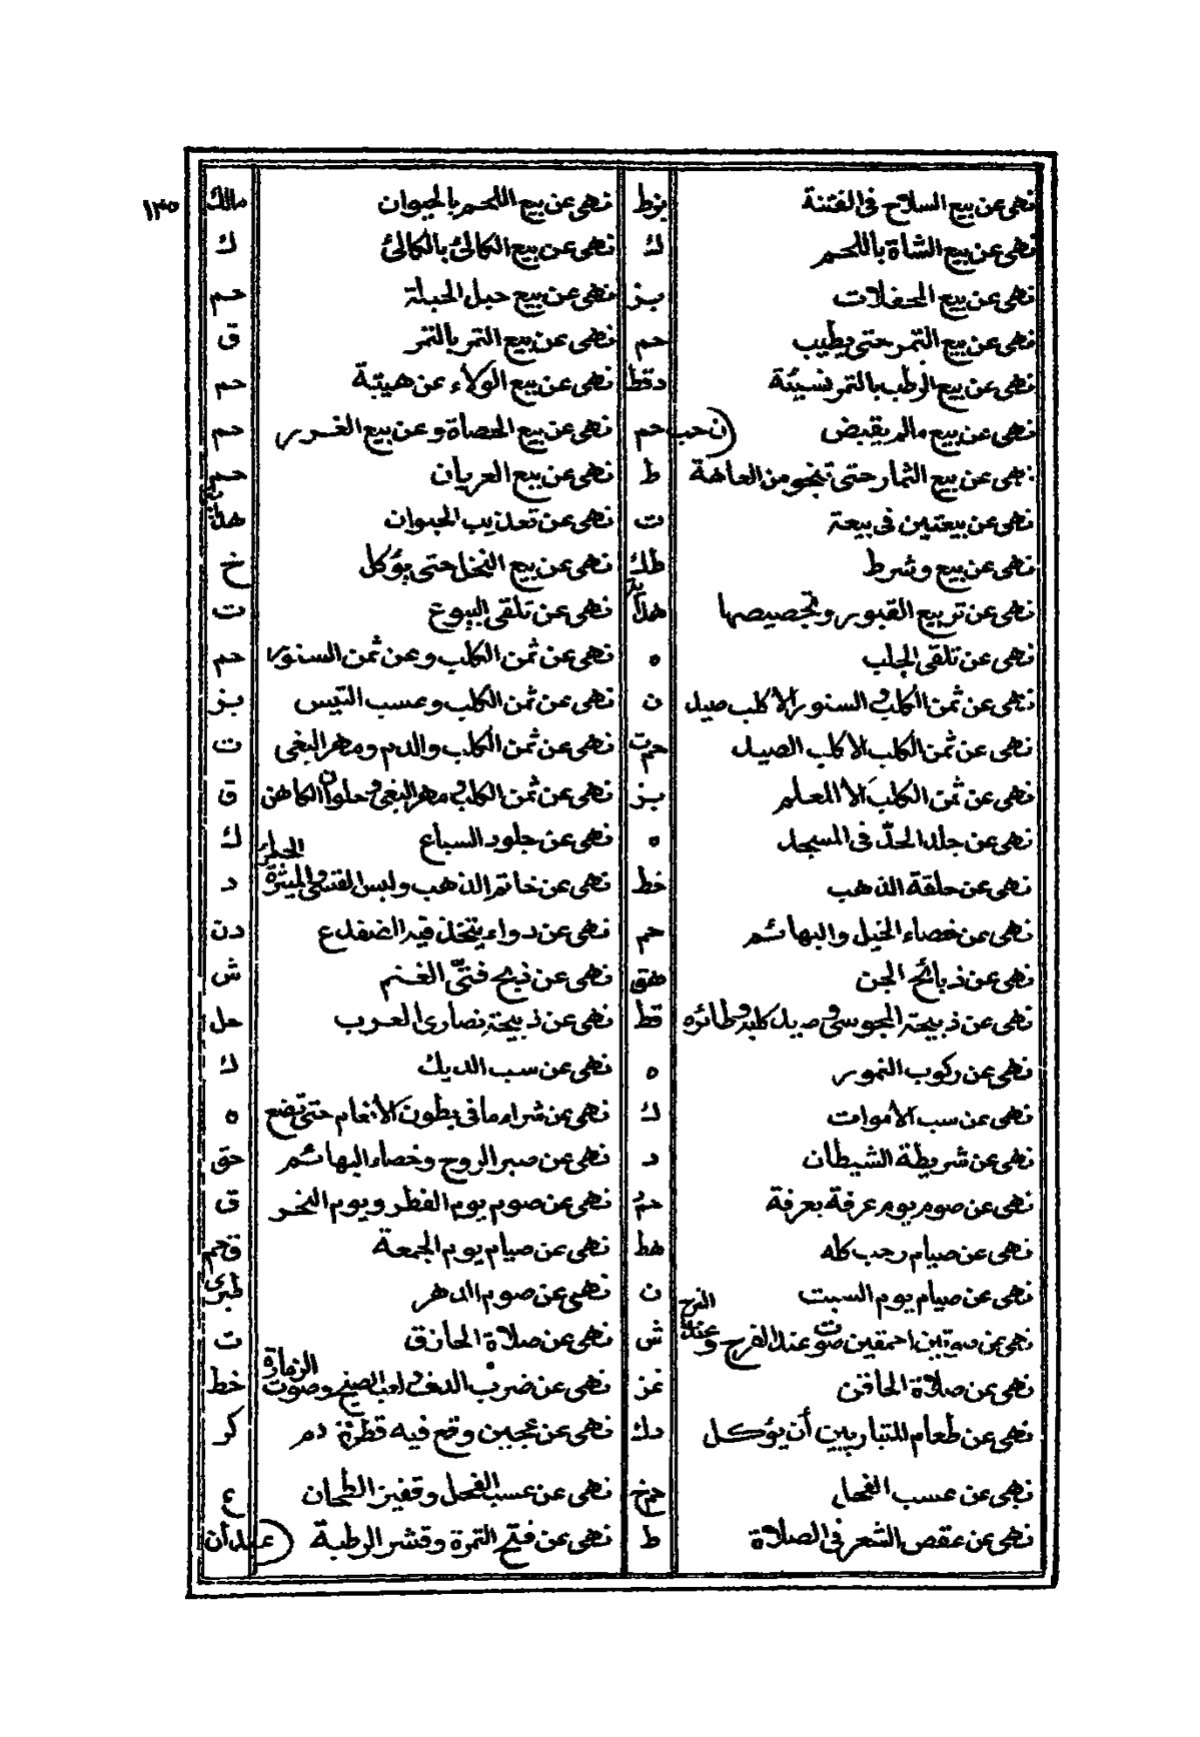 ١٣٥
نهى عن بيع السلاح في الفتنة بز ط نهى عن بيع اللحم بالحيوان مالك
نهى عن بيع الشاة باللحم ك نهى عن بيع الكالئ بالكالئ ك
نهى عن بيع المحفلات بز نهى عن بيع حبل الحبلة حم
نهى عن بيع التمر حتى يطيب حم نهى عن بيع التمر بالتمر ق
نهى عن بيع الرطب بالتمر نسيئة د قط نهى عن بيع الولاء عن هبته حم
نهى عن بيع مالم يقبض (ن حب حم نهى عن بيع الحصاة وعن بيع الغرر حم
نهى عن بيع الثمار حتى تنجو من العاهة ط نهى عن بيع العربان حم
نهى عن بيعتين في بيعة ت نهى عن تعذيب الحيوان
نهى عن بيع وشرط طك نهى عن بيع النخل حتى يؤكل خ
نهى عن تربيع القبور وتجصيصها نهى عن تلقى البيوع ت
نهى عن تلقى الجلب ه نهى عن ثمن الكلب وعن ثمن السنور حم
نهى عن ثمن الكلب والسنور الا كلب صيد ن نهى عن ثمن الكلب وعسب التيس بز
نهى عن ثمن الكلب الا كلب الصيد حم ت نهى عن ثمن الكلب والدم ومهر البغى ت
نهى عن ثمن الكلب الا المعلم بز نهى عن ثمن الكلب ومهر البغى وحلوان الكاهن ق
نهى عن جلد الحدّ في المسجد ه نهى عن جلود السباع ك
نهى عن حلقة الذهب خط نهى عن خاتم الذهب ولبس القسى والميثرة الحمراء د
نهى عن خصاء الخيل والبهائم حم نهى عن دواء يتخذ فيه الضفدع دن
نهى عن ذبائح الجن هق نهى عن ذبح فتىّ الغنم ش
نهى عن ذبيحة المجوسى وصيد كلبه وطائره قط نهى عن ذبيحة نصارى العرب حل
نهى عن ركوب النمور ه نهى عن سب الديك ك
نهى عن سب الأموات ك نهى عن شراء ما في بطون الأنعام حتى تضع ه
نهى عن شريطة الشيطان د نهى عن صبر الروح وخصاء البهائم حق
نهى عن صوم يوم عرفة بعرفة نهى عن صوم يوم الفطر ويوم النحر ق
نهى عن صيام رجب كله هط نهى عن صيام يوم الجمعة ق حم
نهى عن صيام يوم السبت ن نهى عن صوم الدهر طبرى
نهى عن صوتين احمقين صوت عند الفرح وعند الترح ش نهى عن صلاة الحازق ت
نهى عن صلاة الحاقن غز نهى عن ضرب الدف ولعب الصنج وصوت الزمارة خط
نهى عن طعام المتباريين أن يؤكل دك نهى عن عجين وقع فيه قطرة دم كر
نهى عن عسب الفحل حم خ نهى عن عسب الفحل وقفيز الطحان ع
نهى عن عقص الشعر في الصلاة ط نهى عن فتح التمرة وقشر الرطبة (عبدان